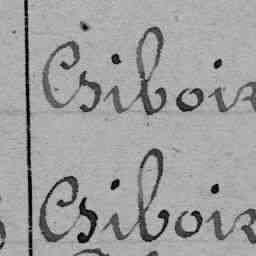 Csiboir
Csiboir